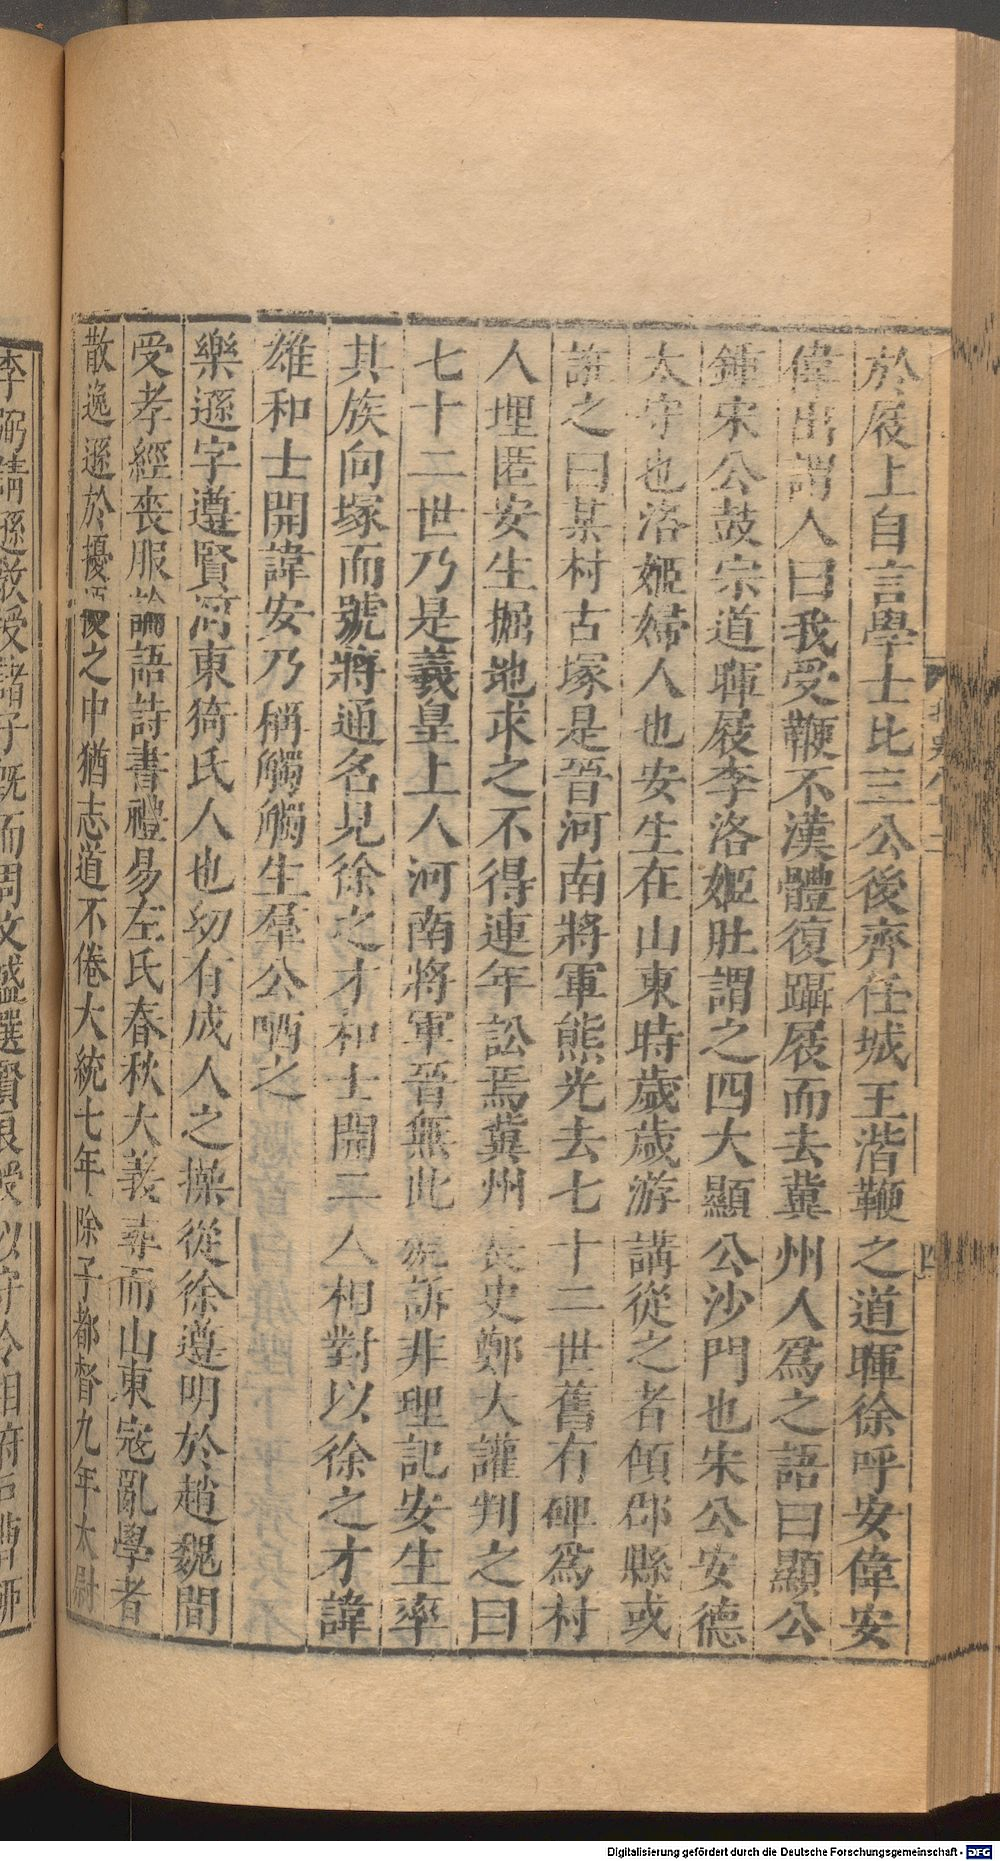 於屐上自言學士比三公後齊任城王湝鞭之道暉徐呼安偉安
偉出謂人曰我受鞭不漢體復躡屐而去冀州人爲之語曰顯公
鍾宋公鼓宗道暉屐李洛姬肚謂之四大顯公沙門也宋公安德
太守也洛姬婦人也安生在山東時歲歲游講從之者傾郡縣或
誑之曰某村古塚是晉河南將軍熊光去七十二世舊有碑爲村
人埋匿安生掘地求之不得連年訟焉冀州長史鄭大讙判之曰
七十二世乃是羲皇上人河南將軍晉無此號訴非理記安生率
其族向塚而號將通名見徐之才和士開二人相對以徐之才諱
雄和士開諱安乃稱觸觸生羣公哂之
樂遜字遵賢河東猗氏人也幼有成人之操從徐遵明於趙魏間
受孝經喪服論語詩書禮易左氏春秋大義尋而山東寇亂學者
散逸遜於擾攘之中猶志道不倦大統七年除子都督九年太尉
李弼請遜教授諸子旣而周文盛選賢良授以守令相府戸曹柳
四
Digitalisierung gefördert durch die Deutsche Forschungsgemeinschaft - DFG